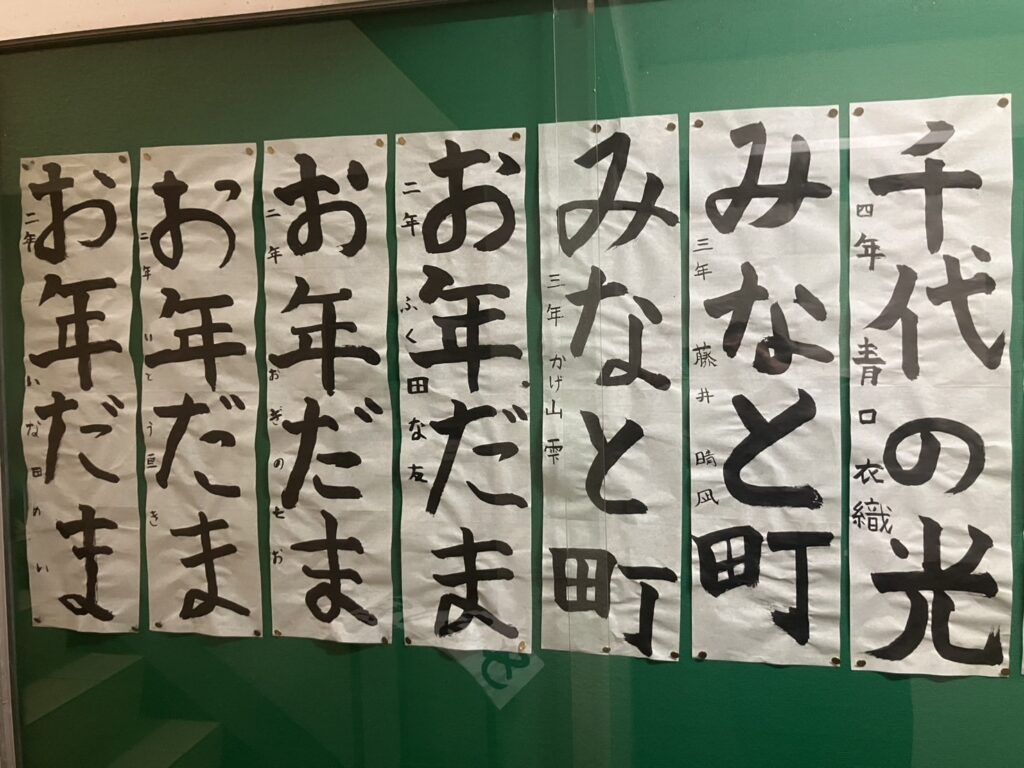 千代の光
四年 青口 衣織
みなと町
三年 藤井 晴凪
みなと町
三年 かげ山 雫
お年だま
二年 ふく田 な
お年だま
二年 おぎの七お
お年だま
二年 いとう
き
お年だま
二年 いな田 めい